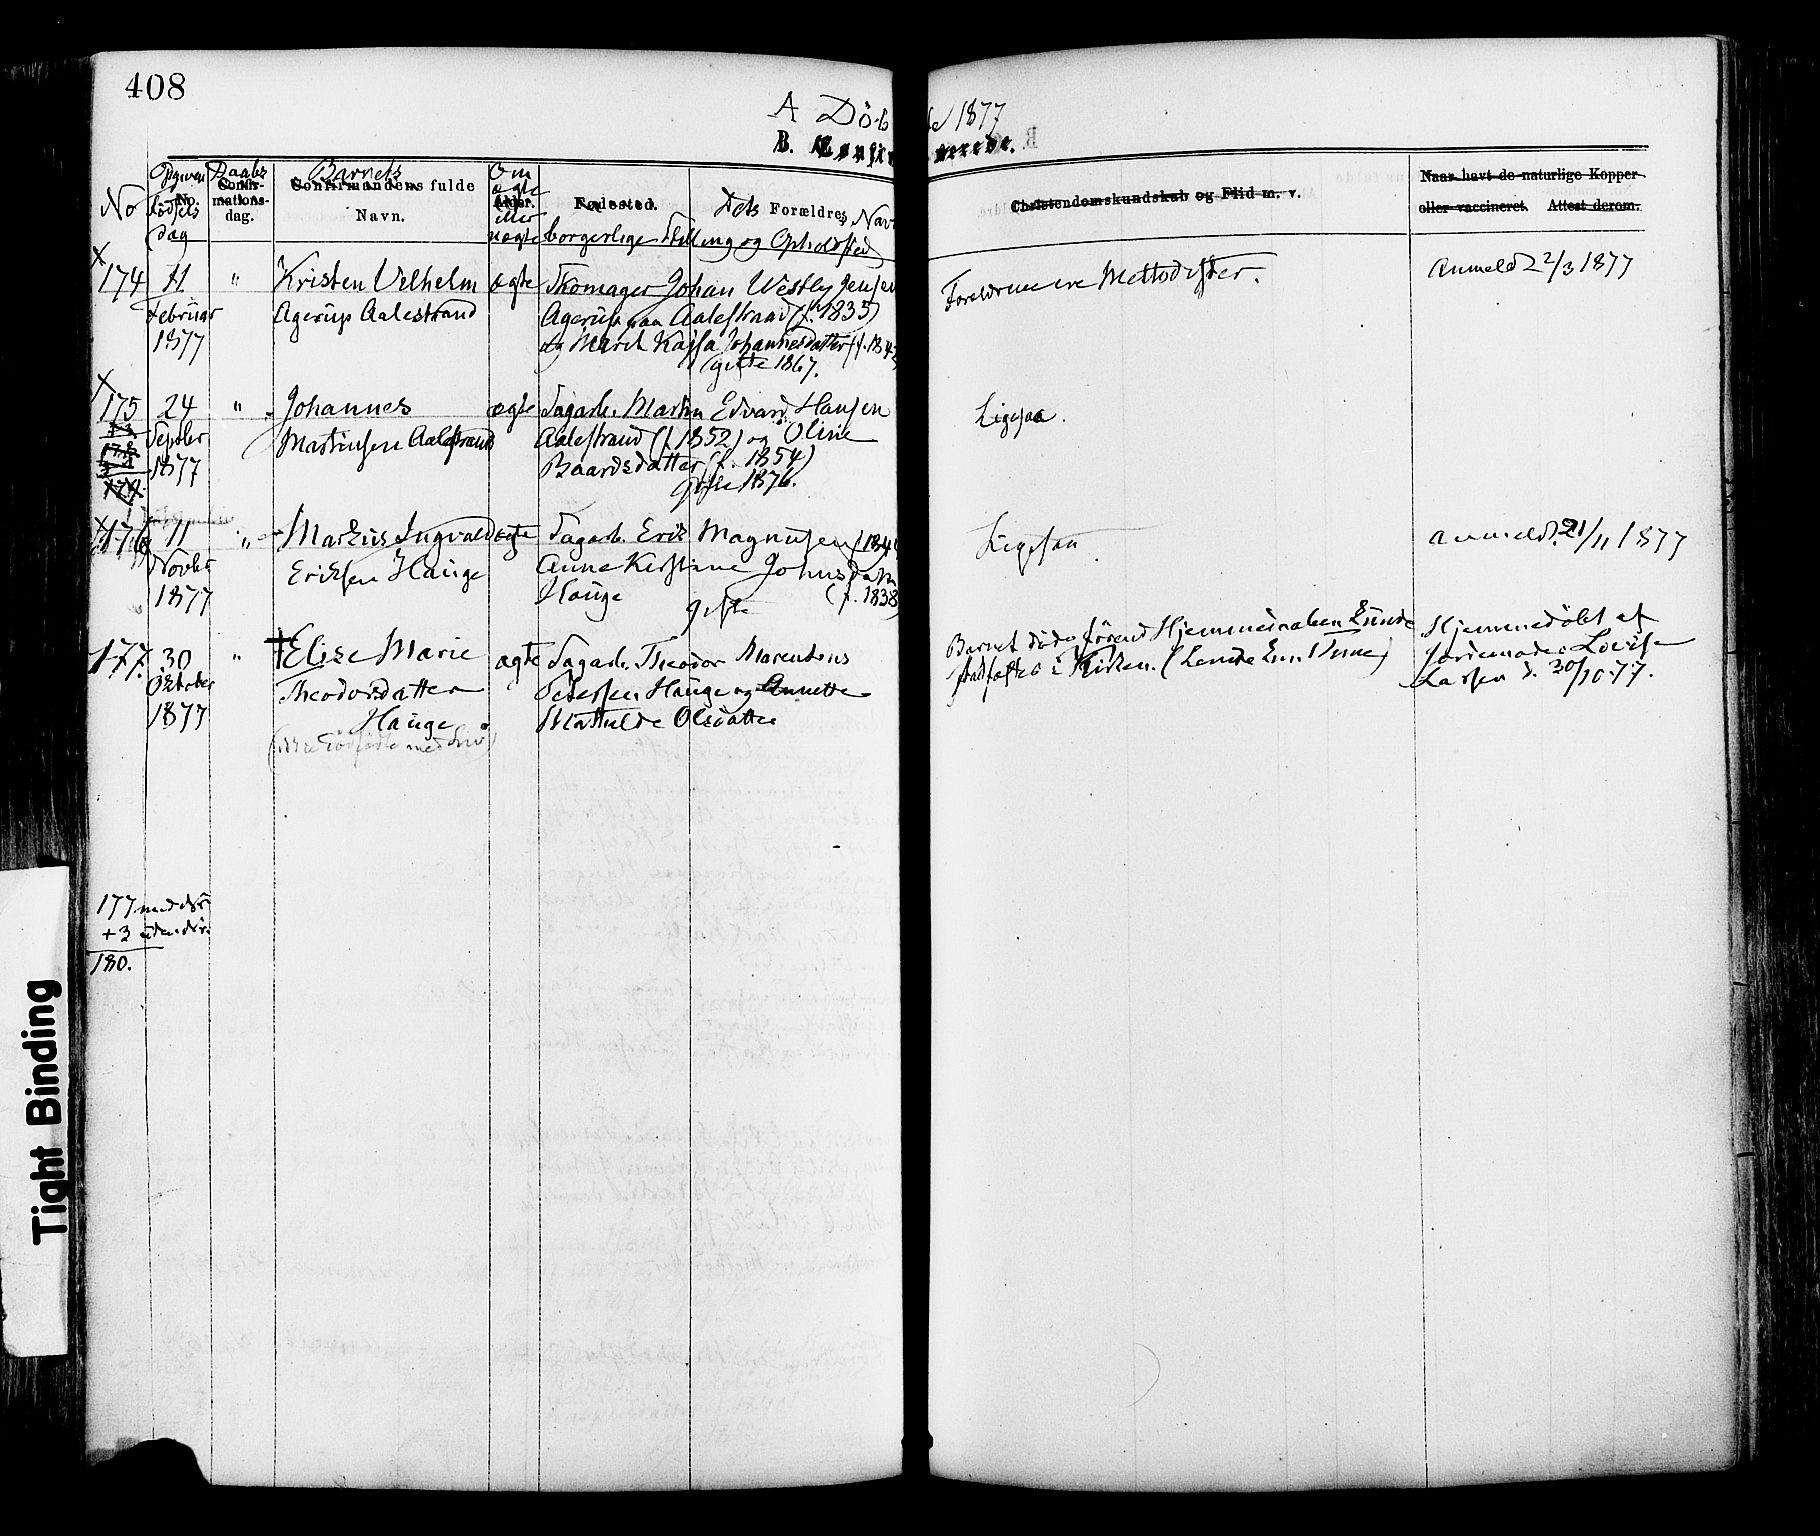 408
A Döbte 1877
B. Confirmerede.
No
Opgiven Fødsels dag
No.
Daabs
Confirmations-
dag.
Barnets
Confirmandens fulde
Navn.
Om ægte eller uægte
Alder.
Fødested.
Dets Forældres Navn
borgerlige Stilling og Opholdsted
Christendomskundskab og Flid m. v.
Naar havt de naturlige Kopper
eller vaccineret. Attest derom.
174 11 " Kristen Vilhelm ægte Skomager Johan Westby Jensen
Februar Agerup Aalestrand Agerup paa Aalestrand (f. 1835)
1877 og Maren Kajsa Johannesdatter (f. 184
gifte 1867.
Foreldrene ere Methodister.
Anmeldt 2/3 1877
175 24 " Johannes ægte Dagarb. Martin Edvard Hansen
Septbr Martinsen Aalestrand Aalestrand (f. 1852) og Oline
1877 Baardsdatter (f. 1854)
gifte 1876.
Ligesaa.
176 11 " Markus Ingvald ægte Dagarb. Erik Magnusen (184
Novbr Eriksen Hauge Anne Kirstine Johnsdatt
1877 Hauge (f. 1838)
gifte
Ligesaa
Anmeldt 21/11 1877
177. 30 " † Elise Marie ægte Dagarb. Theodor Marentius
Oktober Theodorsdatter Petersen Hauge og Annette
1877 Hauge Mathilde Olsdatter
(ikke dödfödt med Liv)
Barnet döde förend Hjemmedaaben kunde
stadfæstes i Kirken.
Hjemmedöbt af
Jordemoder Lovise
Larsen d. 30/10 77.
177 med
+3 uden
180.
Tight Binding